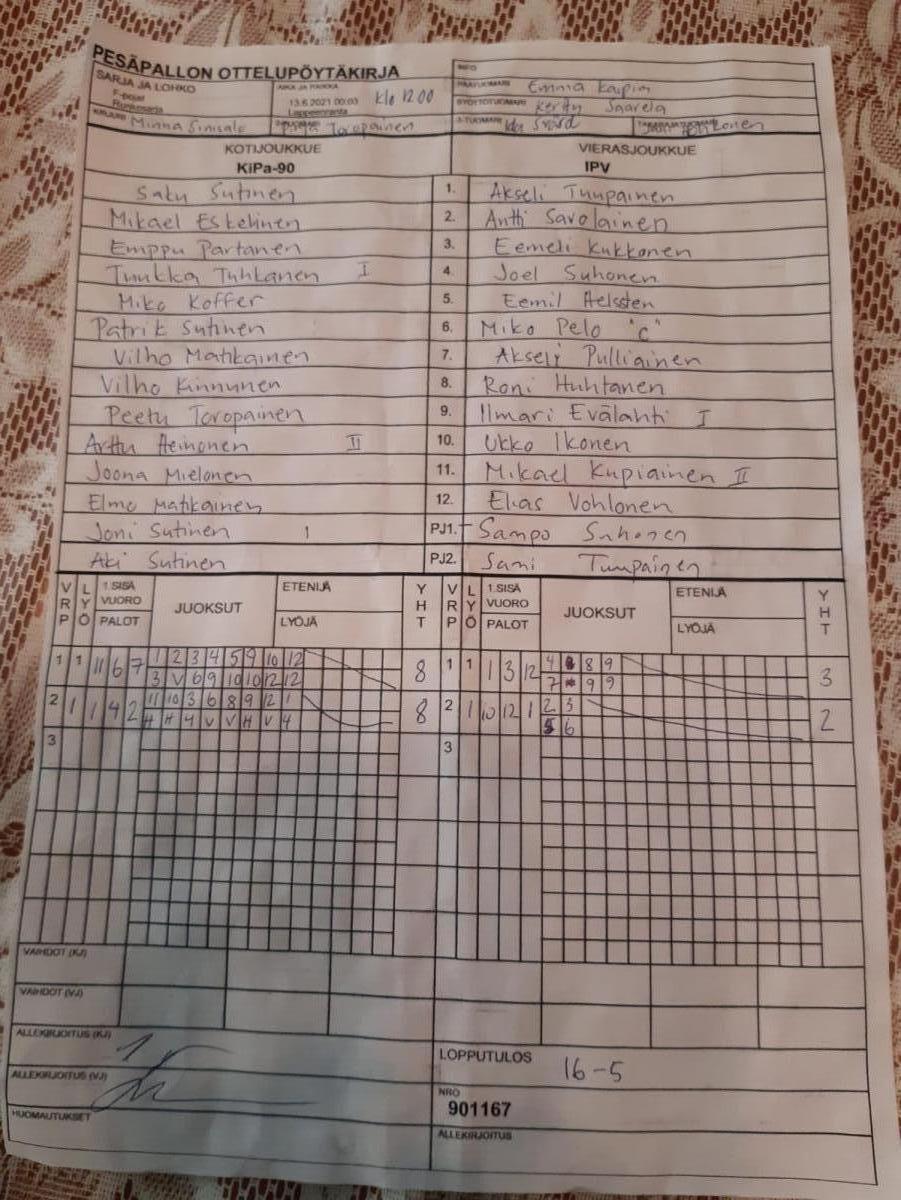 PESÄPALLON OTTELUPÖYTÄKIRJA
INFO
SARJA JA LOHKO
AIKA JA PAIKKA
F-pojat
Runkosarja
13.6.2021 00:03 Klo 12.00
Lappeenranta
PÄÄTUOMARI Emma Kaipin
SYÖTTÖTUOMARI Kerttu Saarela
KIRJURI Minna Sinisalo
Toropainen
2-TUOMARI Svärd
KOTIJOUKKUE
KiPa-90
VIERASJOUKKUE
IPV
Satu Sutinen 1. Akseli Tuupainen
Mikael Eskelinen 2. Antti Savolainen
Emppu Partanen 3. Eemeli Kukkonen
Tuukka Tuhkanen I 4. Joel Suhonen
Miko Koffer 5. Eemil Helssten
Patrik Sutinen 6. Miko Pelo "C"
Vilho Matikainen 7. Akseli Pulliainen
Vilho Kinnunen 8. Roni Huhtanen
Peetu Toropainen 9. Ilmari Evälahti I
Arttu Heinonen II 10. Ukko Ikonen
Joona Mielonen 11. Mikael Kupiainen II
Elmo Matikainen 12. Elias Vohlonen
Joni Sutinen I PJ1. Sampo Suhonen
Aki Sutinen PJ2. Sami Tuupainen
VRP LYÖ 1.SISÄ VUORO PALOT JUOKSUT ETENIJÄ LYÖJÄ YHT VRP LYÖ 1.SISÄ VUORO PALOT JUOKSUT ETENIJÄ LYÖJÄ YHT
1 1 11 6 7 1 2 3 4 5 9 10 12 8 1 1 1 3 12 4 8 9 3
3 V 6 9 10 10 12 12 7 9 9
2 1 1 4 2 11 10 3 6 8 9 12 1 8 2 1 10 12 1 2 3 2
H H 4 V V H V 4 5 6
3 3
VAIHDOT (KJ)
VAIHDOT (VJ)
ALLEKIRJOITUS (KJ)
LOPPUTULOS 16-5
ALLEKIRJOITUS (VJ)
NRO
901167
HUOMAUTUKSET
ALLEKIRJOITUS